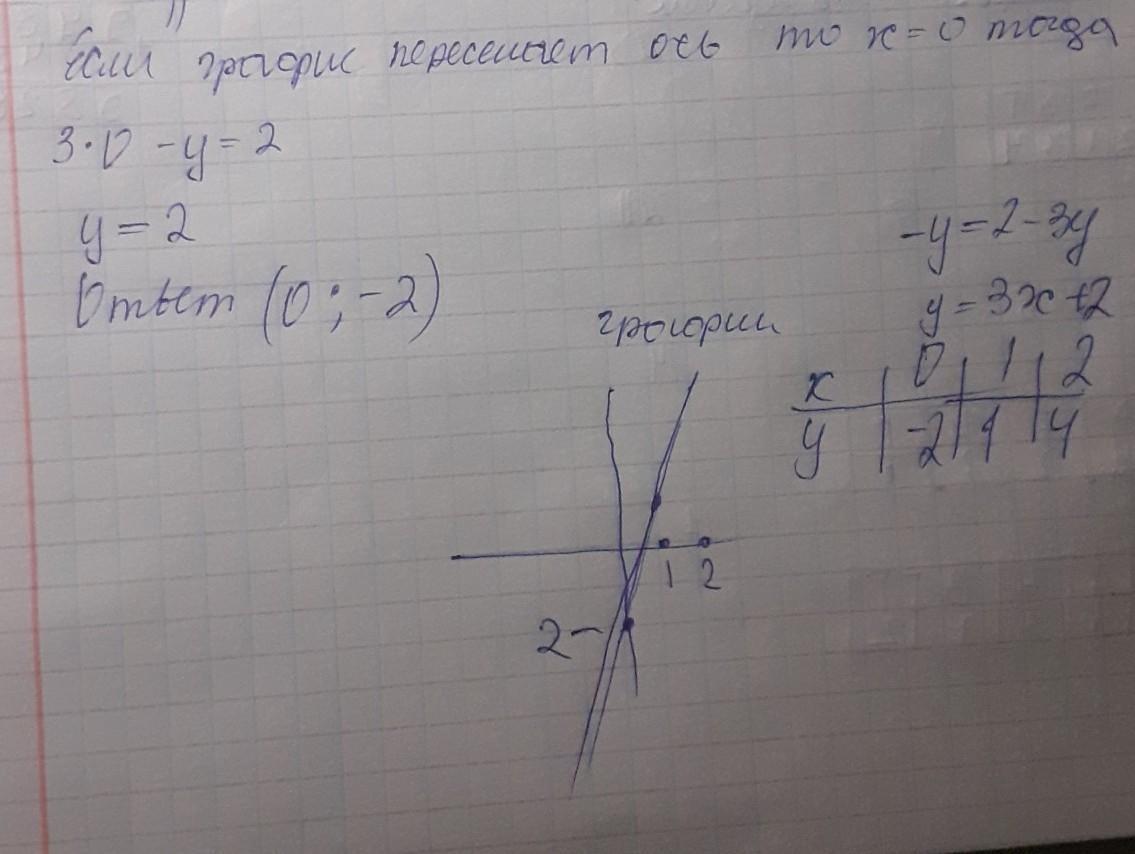 если график пересекает ось то x=0 тогда
3·0 -y=2
y=2
Ответ (0;-2)
-y=2-3y
y=3x+2
график
x 0 1 2
y -2 1 4
1 2
2